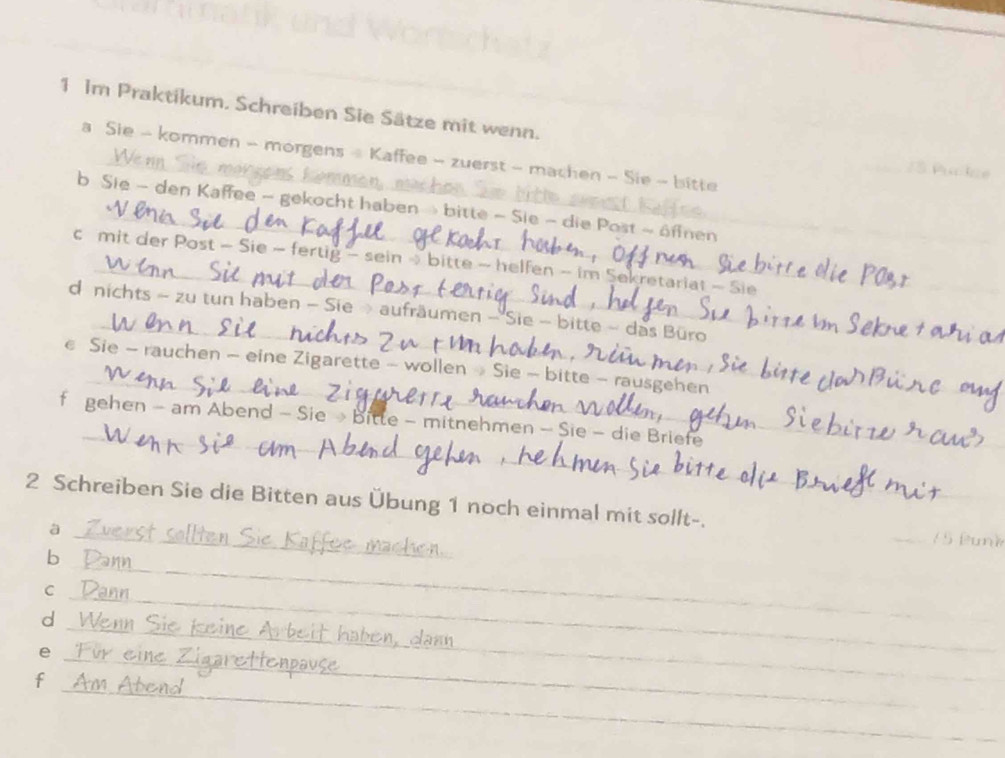 Grammatik und Wortschatz
1 Im Praktikum. Schreiben Sie Sätze mit wenn.
/5 Punkte
a Sie – kommen – morgens → Kaffee – zuerst – machen – Sie – bitte
Wenn Sie morgens kommen, machen Sie bitte zuerst Kaffee.
b Sie – den Kaffee – gekocht haben → bitte – Sie – die Post – öffnen
Wenn Sie den Kaffee gekocht haben, öffnen Sie bitte die Post
c mit der Post – Sie – fertig – sein → bitte – helfen – im Sekretariat – Sie
Wenn Sie mit der Post fertig sind, helfen Sie bitte im Sekretariat
d nichts – zu tun haben – Sie → aufräumen – Sie – bitte – das Büro
Wenn sie nichts zu tun haben, räumen, Sie bitte das Büro auf
e Sie – rauchen – eine Zigarette – wollen → Sie – bitte – rausgehen
Wenn Sie eine Zigarette rauchen wollen, gehen Sie bitte raus
f gehen – am Abend – Sie → Bitte – mitnehmen – Sie – die Briefe
Wenn sie am Abend gehen, nehmen Sie bitte die Briefe mit
2 Schreiben Sie die Bitten aus Übung 1 noch einmal mit sollt-.
/5 Punk
a Zuerst sollten Sie Kaffee machen.
b Dann
c Dann
d Wenn Sie keine Arbeit haben, dann
e Für eine Zigarettenpause
f Am Abend